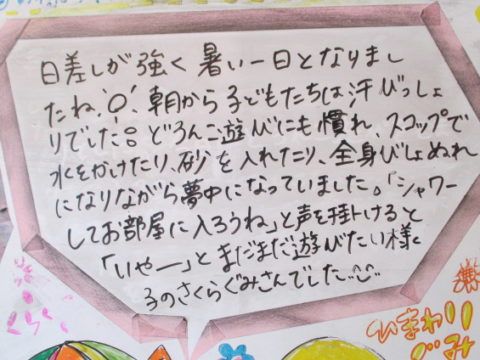 日差しが強く暑い一日となりまし
たね。朝から子どもたちは汗びっしょ
りでした。どろんこ遊びにも慣れ、スコップで
水をかけたり、砂を入れたり、全身びしょぬれ
になりながら夢中になっていました。「シャワー
してお部屋に入ろうね」と声を掛けると
「いやー」とまだまだ遊びたい様
子のさくらぐみさんでした…
ひまわり
ぐみ